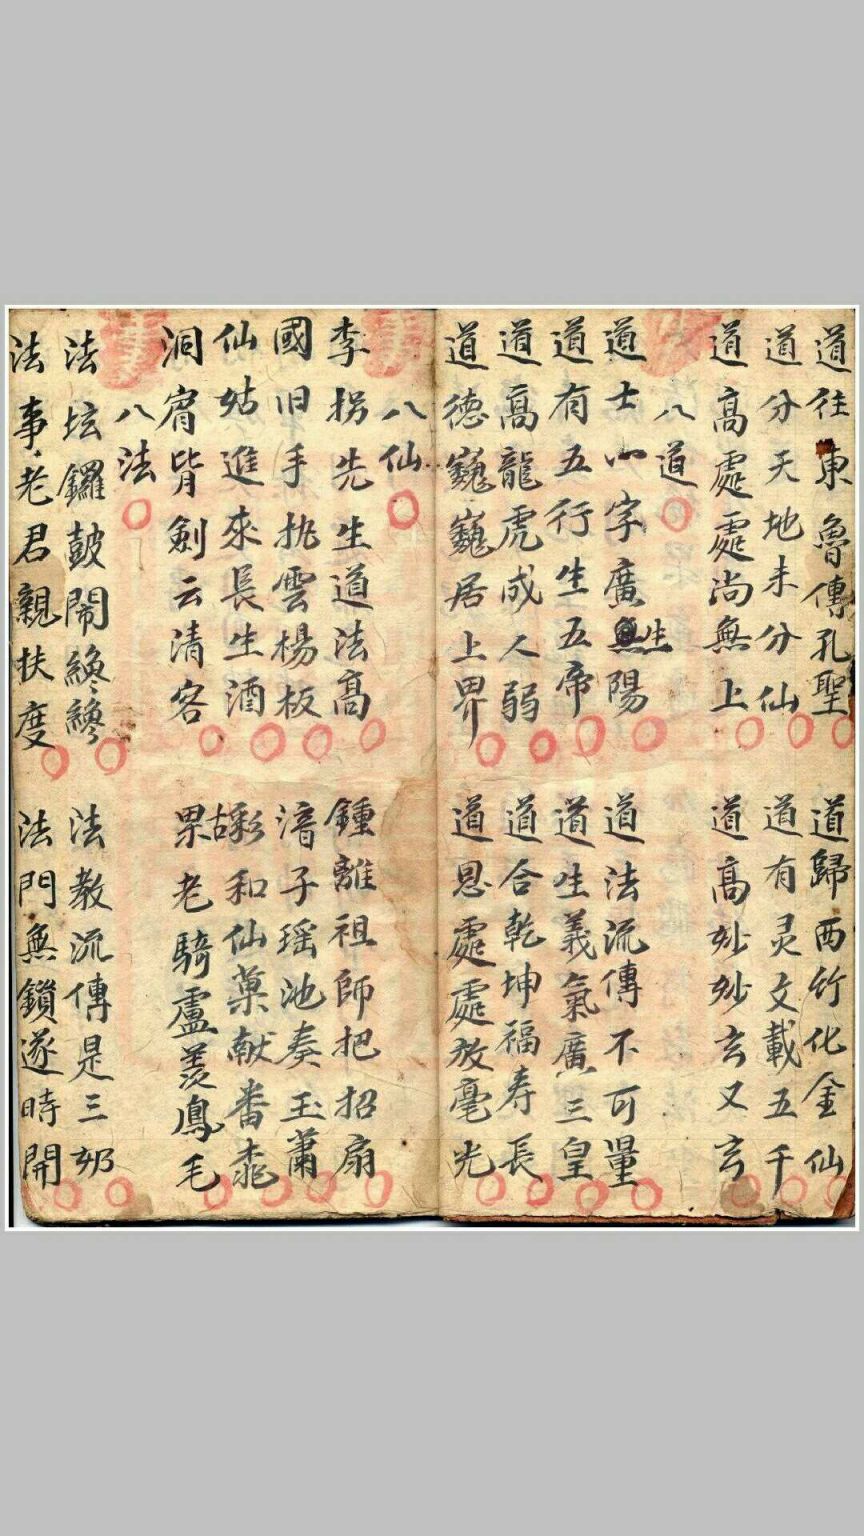 道往東魯傳孔聖
道歸西竹化金仙
道分天地未分仙
道有灵文載五千
道高處處尚無上
道高妙妙玄又玄
八道
道士心字廣生陽
道法流傳不可量
道有五行生五帝
道生義氣廣三皇
道高龍虎成人弱
道合乾坤福寿長
道德巍巍居上界
道恩處處放毫光
八仙
李拐先生道法高
鍾離祖師把招扇
國旧手执雲楊板
湇子瑶池奏玉蕭
仙姑進來長生酒
彩和仙菓献番桃
洞賓背劍云清客
果老騎盧羡鳳毛
八法
法坛鑼鼓鬧纔纔
法教流傳是三奶
法事老君親扶度
法門無鎖遂時開